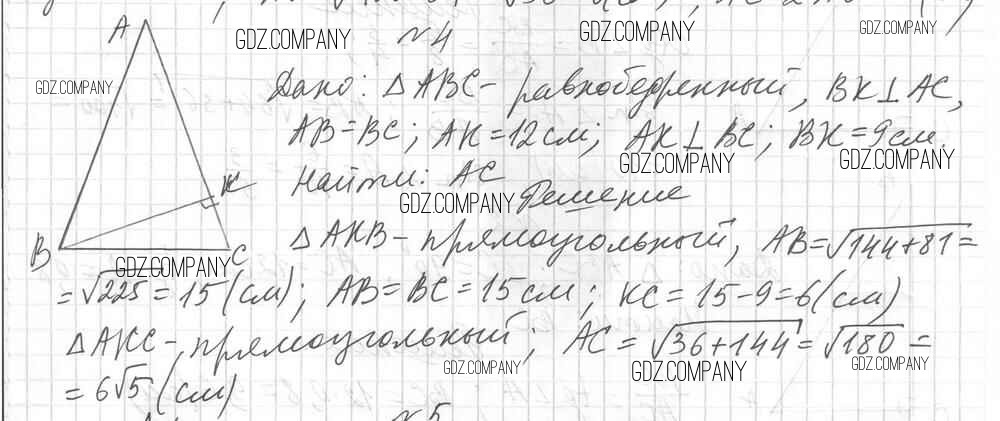 GDZ.COMPANY GDZ.COMPANY GDZ.COMPANY
A №4
GDZ.COMPANY
Дано: △ABC - равнобедренный, BK⊥AC,
AB=BC; AK=12см; AK⊥BC; BK=9см.
GDZ.COMPANY GDZ.COMPANY
K Найти: AC
GDZ.COMPANY Решение
B C △AKB - прямоугольный, AB=√144+81=
GDZ.COMPANY
=√225=15(см); AB=BC=15см; KC=15-9=6(см)
△AKC - прямоугольный; AC=√36+144=√180=
GDZ.COMPANY GDZ.COMPANY GDZ.COMPANY
=6√5(см)
№5